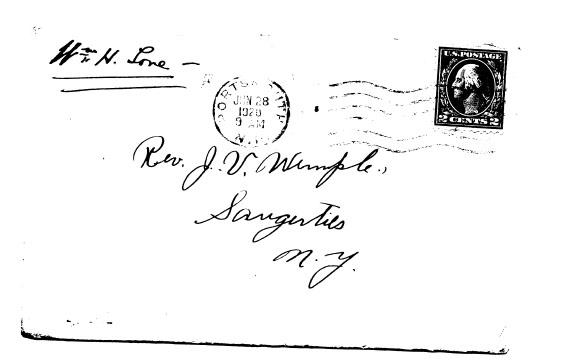 Wm H. Love —
U.S. POSTAGE
2 CENTS 2
PORTSMOUTH
JUN 28
1920
9 AM
N.H.
Rev. J. V. Wemple.,
Saugerties
N. Y.